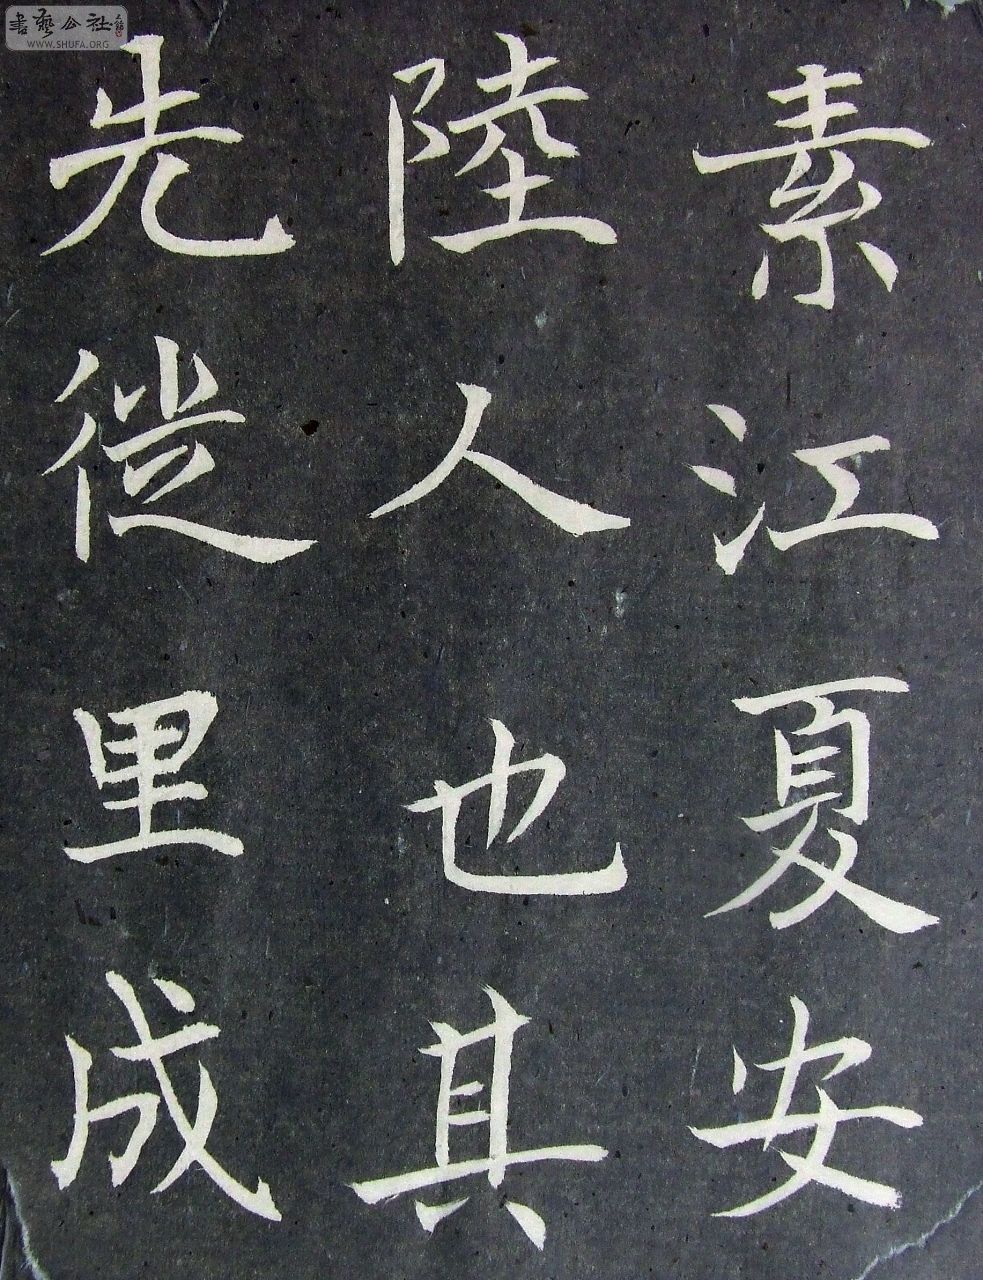 素江夏安
陸人也其
先徙里成
書藝公社
WWW.SHUFA.ORG